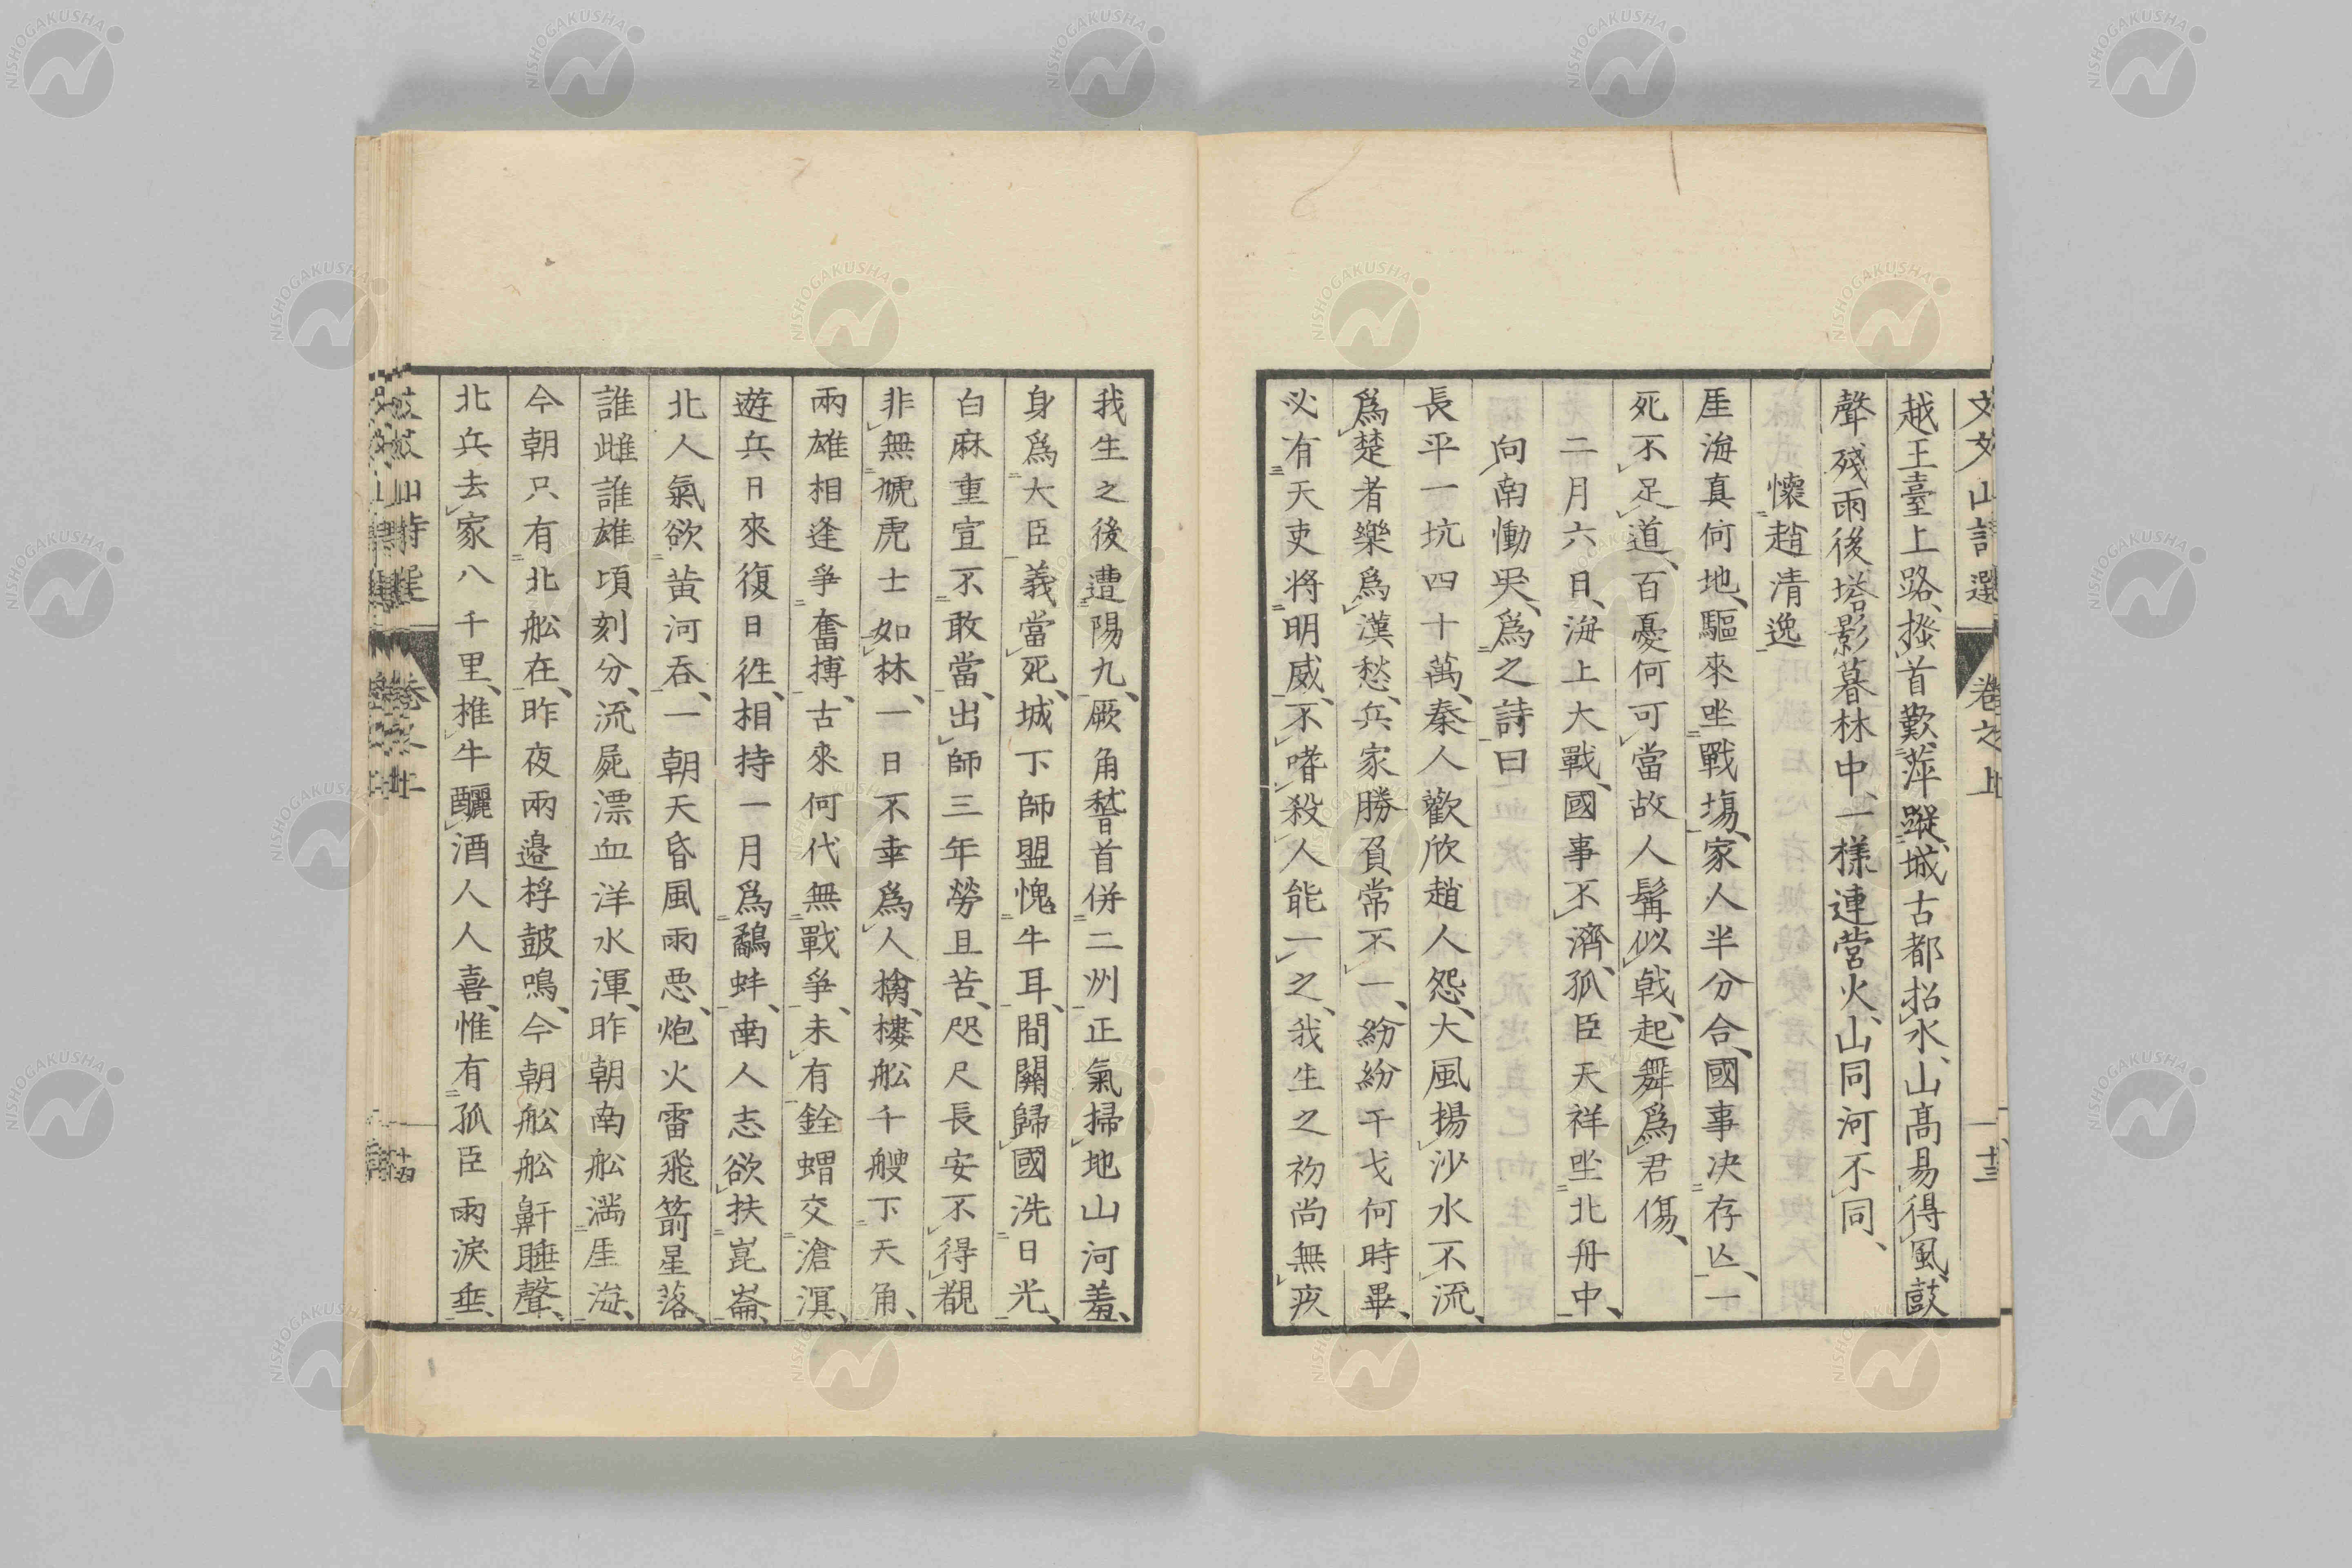 文文山詩選 卷之上 十三
越王臺上路、搔首歎萍蹤、城古都招水、山高易得風、鼓
聲殘雨後、塔影暮林中、一樣連營火、山同河不同、
懷趙清逸
厓海真何地、驅來坐戰塲、家人半分合、國事决存亾、一
死不足道、百憂何可當、故人髯似戟、起舞爲君傷、
二月六日、海上大戰、國事不濟、孤臣天祥坐北舟中、
向南慟哭、爲之詩曰
長平一坑四十萬、秦人歡欣趙人怨、大風揚沙水不流、
爲楚者樂爲漢愁、兵家勝負常不一、紛紛干戈何時畢、
必有天吏将明威、不嗜殺人能一之、我生之初尚無疚
我生之後遭陽九、厥角稽首併二州、正氣掃地山河羞、
身爲大臣義當死、城下師盟愧牛耳、間關歸國洗日光、
白麻重宣不敢當、出師三年勞且苦、咫尺長安不得覩
非無虓虎士如林、一日不幸爲人擒、樓舩千艘下天角、
兩雄相逢爭奮搏、古來何代無戰爭、未有鋒蝟交滄溟、
遊兵日來復日徃、相持一月爲鷸蚌、南人志欲扶崑崙、
北人氣欲黄河吞、一朝天昏風雨惡、炮火雷飛箭星落、
誰雌誰雄頃刻分、流屍漂血洋水渾、昨朝南舩滿厓海、
今朝只有北舩在、昨夜兩邉桴鼓鳴、今朝舩舩鼾睡聲、
北兵去家八千里、椎牛釃酒人人喜、惟有孤臣雨淚垂、